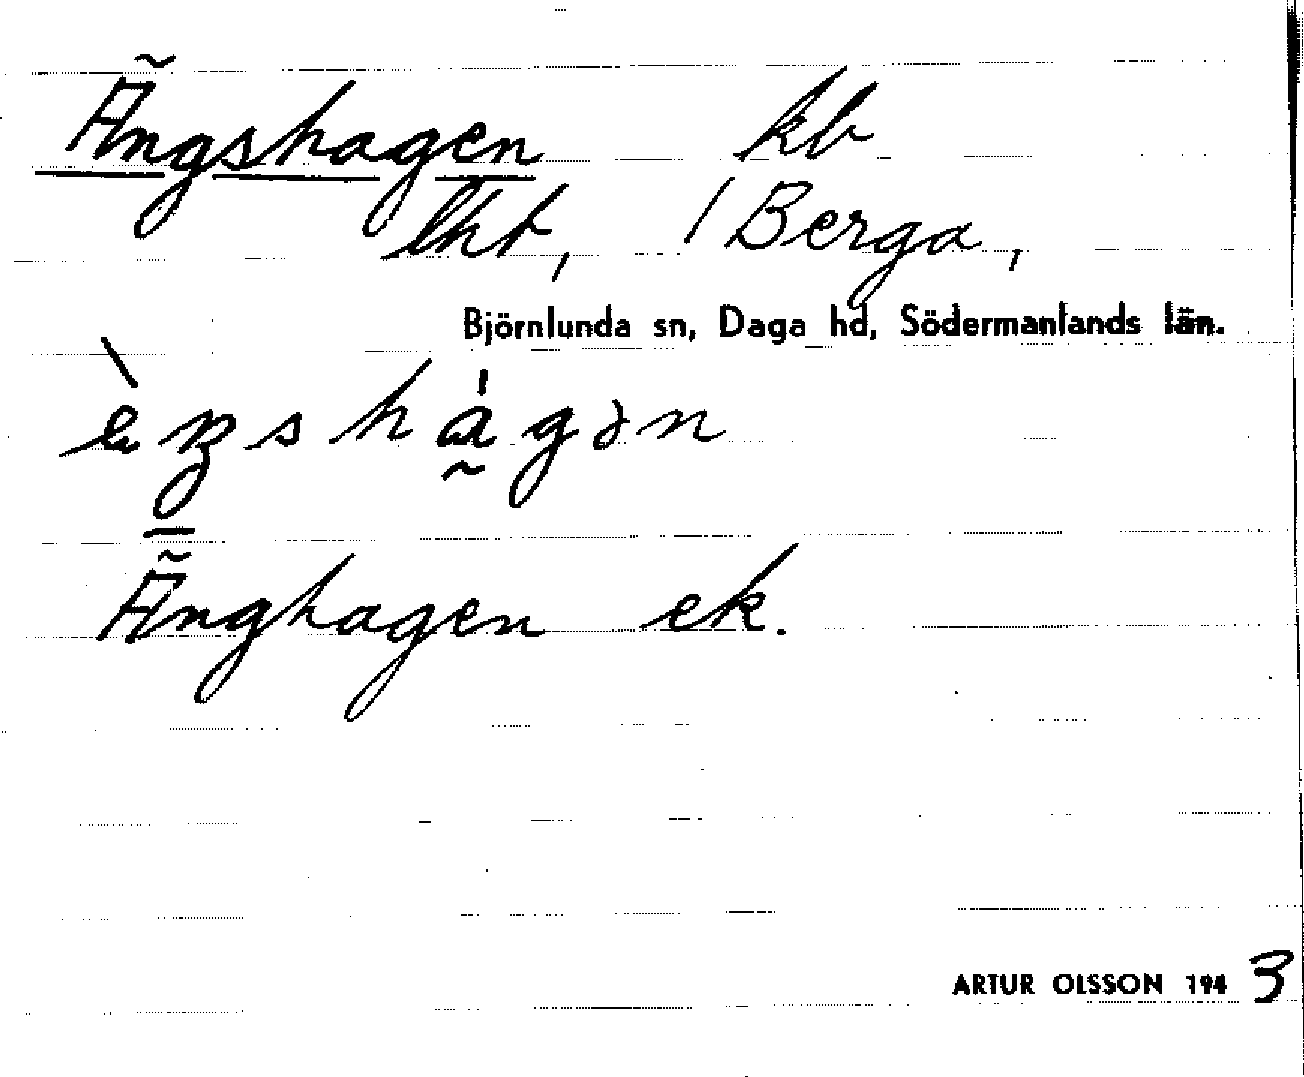 Ängshagen kb
lht, / Berga,
Björnlunda sn, Daga hd, Södermanlands län.
èŋshá̰gən
Änghagen ek.
ARTUR OLSSON 1943